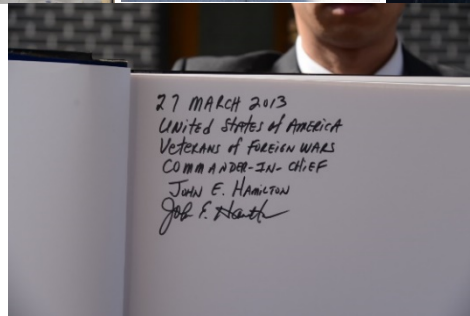 27 MARCH 2013
UNITED STATES of AMERICA
VETERANS of FOREIGN WARS
COMMANDER-IN-CHIEF
JOHN E. HAMILTON